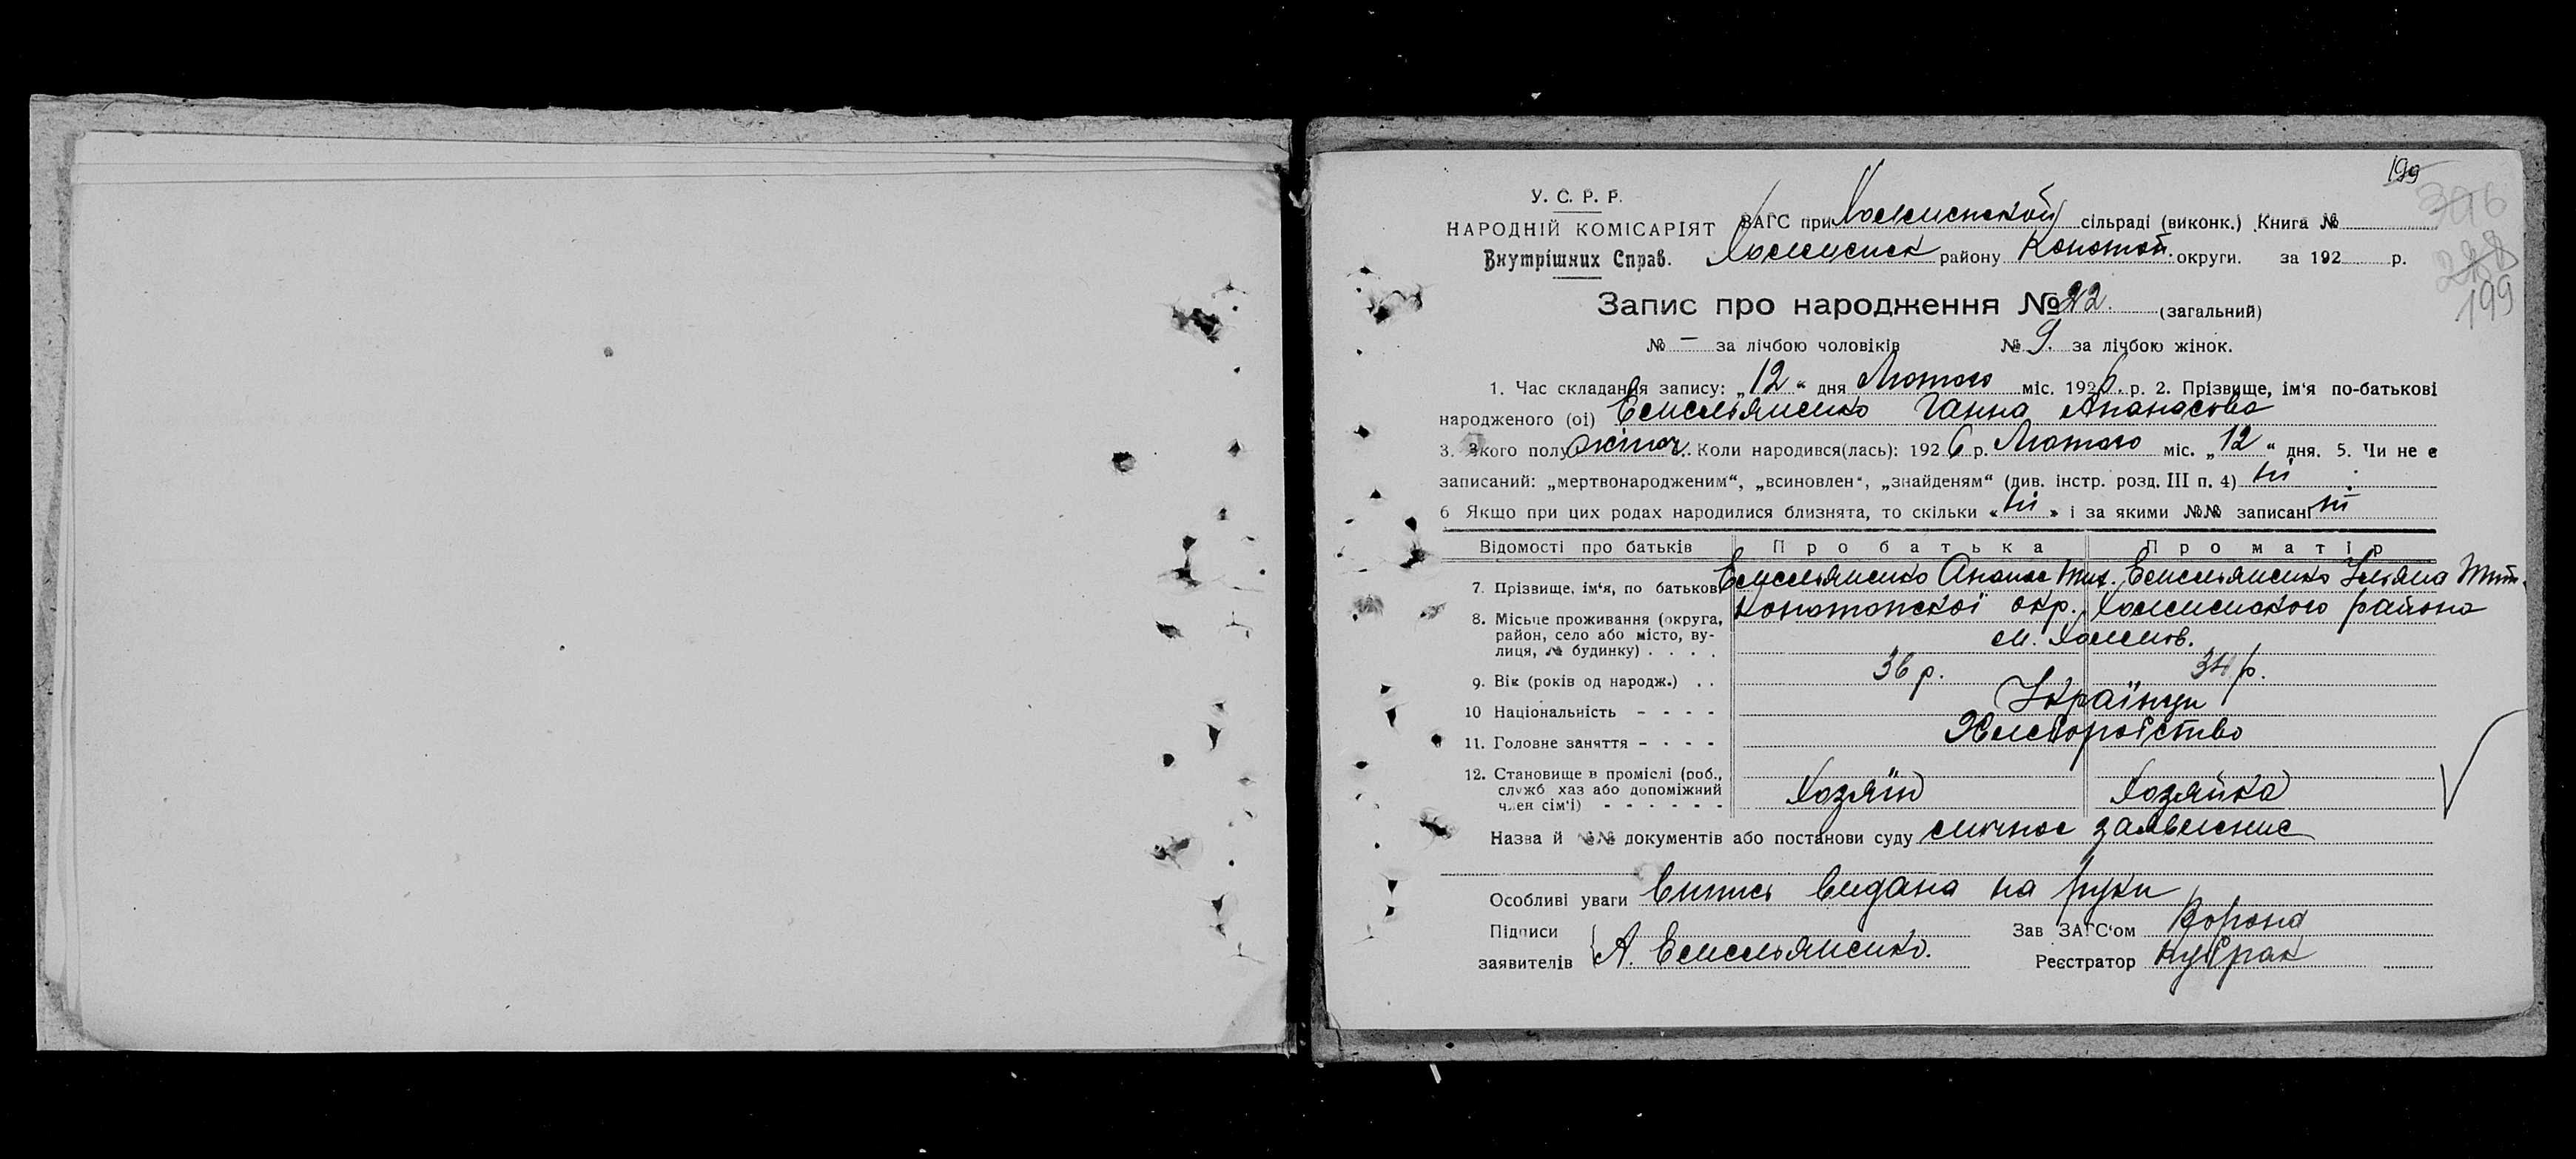 199
306
У. С. Р. Р.
НАРОДНІЙ КОМІСАРІЯТ
Внутрішних Справ.
ЗАГС при сільраді (виконк.) Книга №
району Конотоп. округи. за 192 р.
199
Запис про народження № 22. (загальний)
№ — за лічбою чоловіків № 9. за лічбою жінок.
1. Час складання запису: „12“ дня Лютого міс. 1926. р. 2. Прізвище, ім‘я по-батькові
народженого (ої) Емельяненко Ганна Апанасовна
3. Якого полу жіноч. Коли народився(лась): 1926 р. Лютого міс. „12“ дня. 5. Чи не є
записаний: „мертвонародженим“, „всиновлен“, „знайденям“ (див. інстр. розд. III п. 4) ні
6 Якщо при цих родах народилися близнята, то скільки «ні» і за якими №№ записані ні
Відомості про батьків Про батька Про матір
7. Прізвище, ім‘я, по батькові Емельяненко Апанас Тих. Емельяненко Ульяна Тит.
8. Місьце проживання (округа, район, село або місто, вулиця, № будинку) . . . . Конотопскої окр. района
9. Вік (років од народж.) . . 36 р. 34 р.
10 Національність - - - - Українци
11. Головне заняття - - - - Хлеборобство
12. Становище в проміслі (роб., служб хаз або допоміжний член сім‘і) - - - - - - Хозяїн Хозяйка
Назва й №№ документів або постанови суду заявление
Особливі уваги Выпись видана на руки
Підписи
заявителів А. Емельяненко.
Зав ЗАГС‘ом Ворона
Реєстратор Кубрак